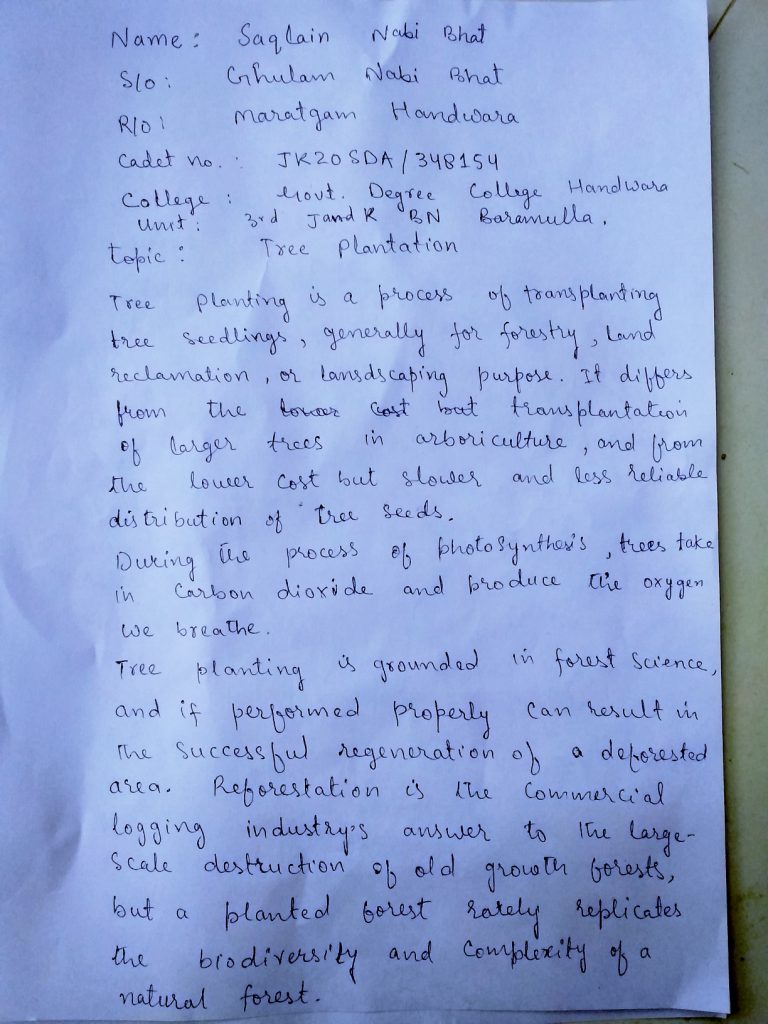 Name: Saqlain Nabi Bhat
S/o: Ghulam Nabi Bhat
R/o: Maratgam Handwara
Cadet no. : JK20SDA/348154
College : Govt. Degree College Handwara
Unit: 3rd JandK BN Baramulla.
topic : Tree plantation
Tree planting is a process of transplanting
tree seedlings, generally for forestry, land
reclamation, or lansdscaping purpose. It differs
from the lower cost but transplantation
of larger trees in arboriculture, and from
the lower cost but slower and less reliable
distribution of tree seeds.
During the process of photosynthesis, trees take
in carbon dioxide and produce the oxygen
we breathe.
Tree planting is grounded in forest science,
and if performed properly can result in
the successful regeneration of a deforested
area. Reforestation is the commercial
logging industry's answer to the large-
scale destruction of old growth forests,
but a planted forest rarely replicates
the biodiversity and complexity of a
natural forest.